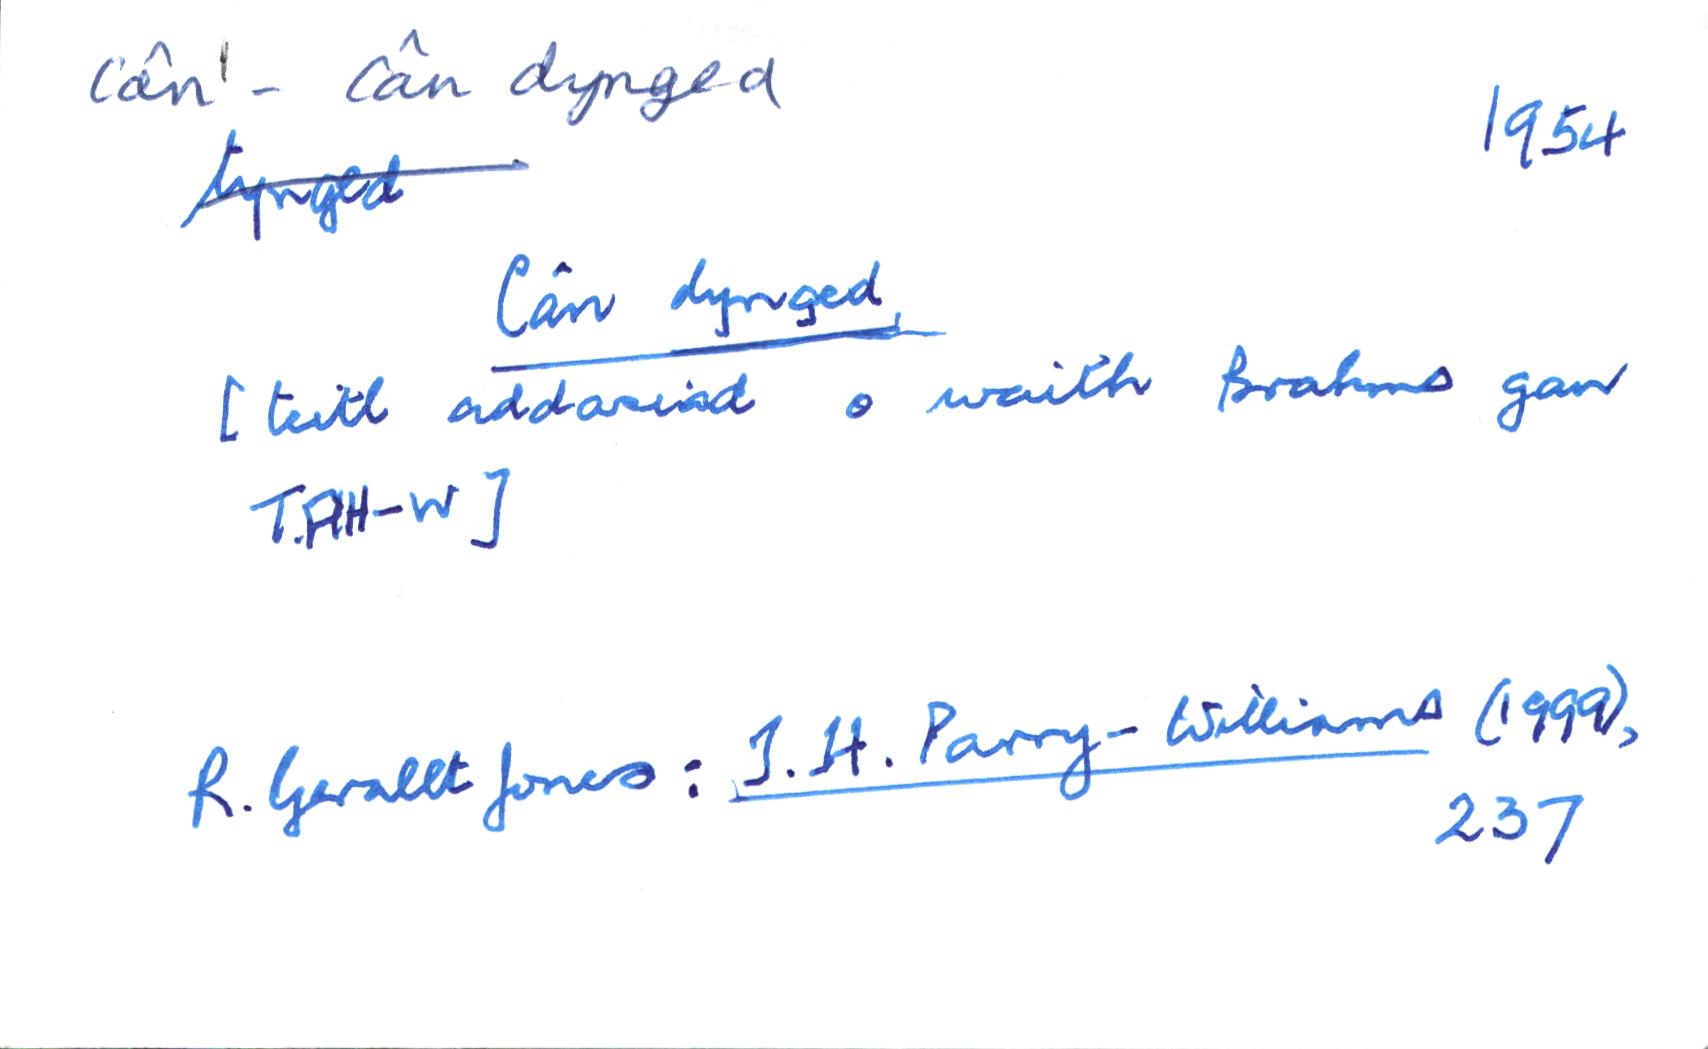 cân¹ - cân dynged
1954
tynged
Cân dynged
[teitl addasiad o waith Brahms gan
T.PH-W]
R. Gerallt Jones: T. H. Parry-Williams (1999),
237